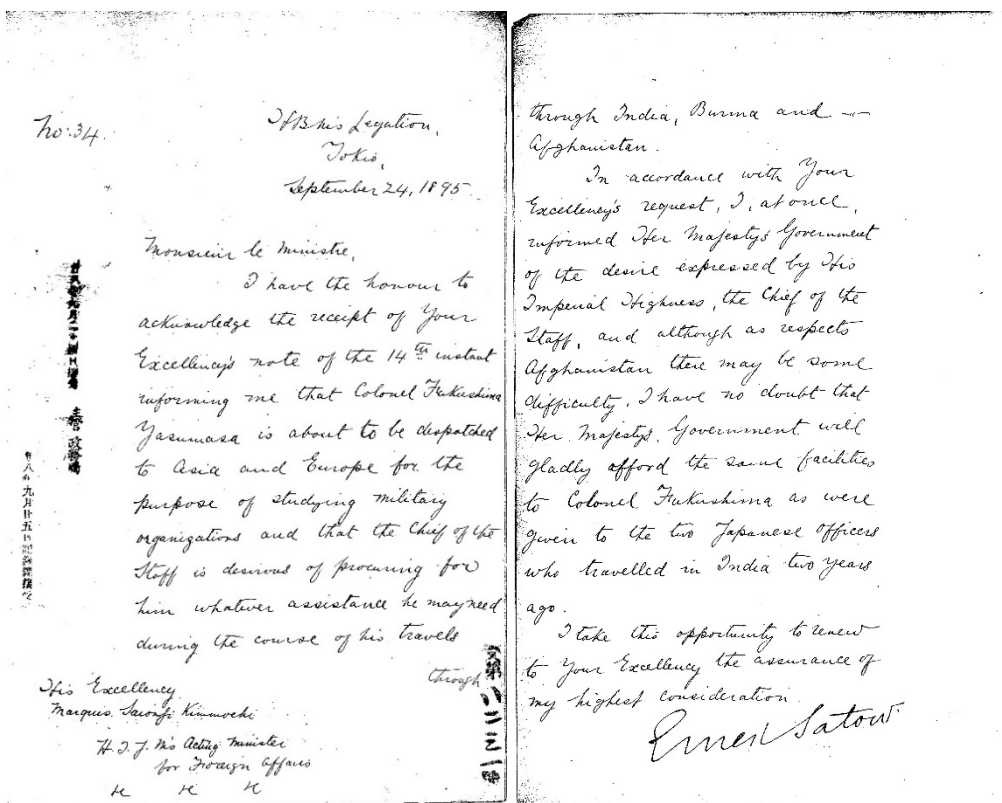 No: 34.
H.B.M's Legation,
Tokio,
September 24, 1895.
Monsieur le Ministre,
I have the honour to
acknowledge the receipt of Your
Excellency's note of the 14th instant
informing me that Colonel Fukushima
Yasumasa is about to be despatched
to Asia and Europe for the
purpose of studying military
organizations and that the Chief of the
Staff is desirous of procuring for
him whatever assistance he may need
during the course of his travels
through
His Excellency
Marquis Saionji Kinmochi
H.I.J.M's Acting Minister
for Foreign Affairs
through India, Burma and
Afghanistan.
In accordance with Your
Excellency's request, I, at once,
informed Her Majesty's Government
of the desire expressed by His
Imperial Highness, the Chief of the
Staff, and although as respects
Afghanistan there may be some
difficulty, I have no doubt that
Her Majesty's Government will
gladly afford the same facilities
to Colonel Fukushima as were
given to the two Japanese officers
who travelled in India two years
ago.
I take this opportunity to renew
to Your Excellency the assurance of
my highest consideration
Ernest Satow
政務局
九月廿五日